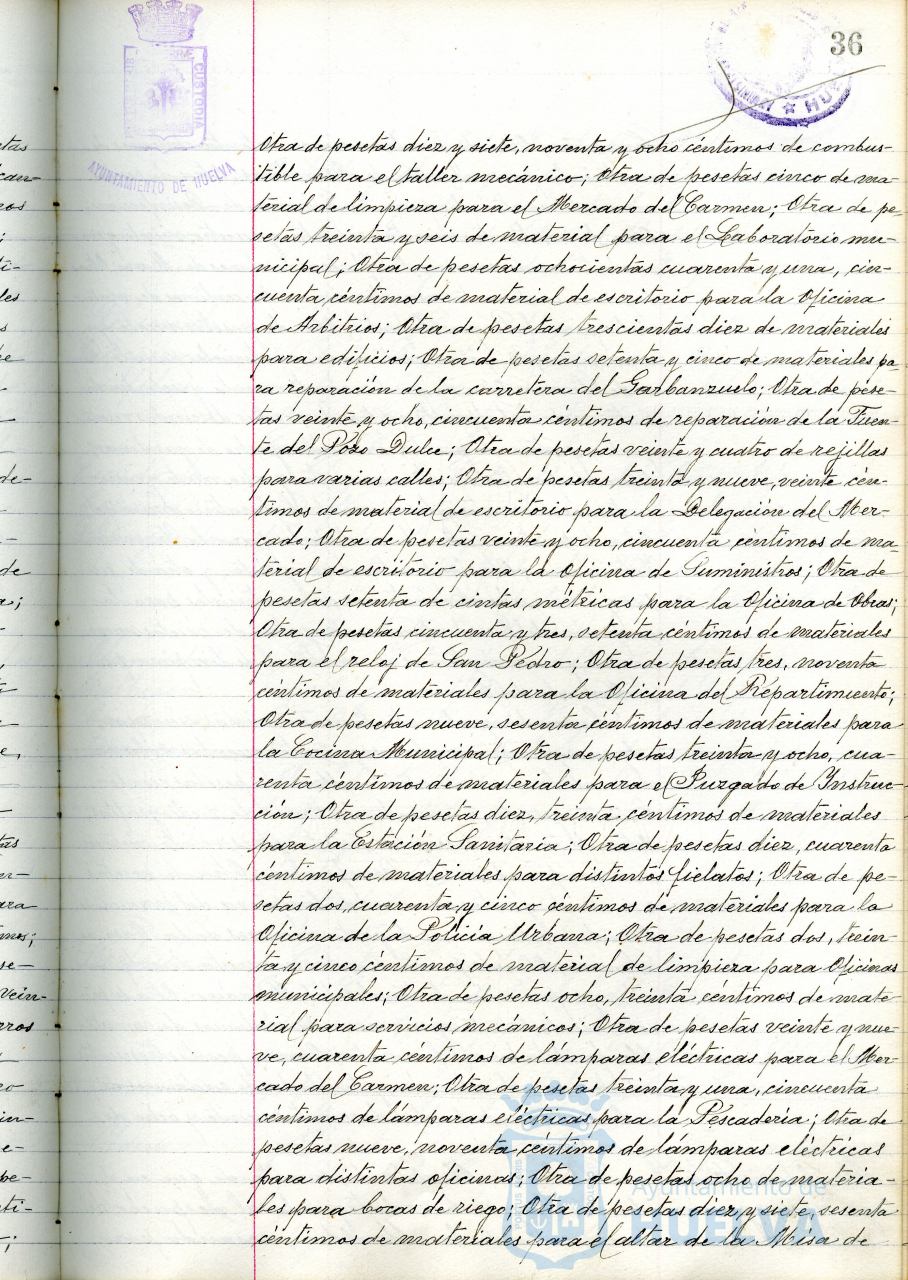 36
CUSTODIA
AYUNTAMIENTO DE HUELVA
Otra de pesetas diez y siete, noventa y ocho céntimos de combus-
tible para el taller mecánico; Otra de pesetas cinco de ma-
terial de limpieza para el Mercado del Carmen; Otra de pe-
setas treinta y seis de material para el Laboratorio mu-
nicipal; Otra de pesetas ochocientas cuarenta y una, cin-
cuenta céntimos de material de escritorio para la Oficina
de Arbitrios; Otra de pesetas trescientas diez de materiales
para edificios; Otra de pesetas setenta y cinco de materiales pa
ra reparación de la carretera del Garbanzuelo; Otra de pese-
tas veinte y ocho, cincuenta céntimos de reparación de la Fuen-
te del Pozo Dulce; Otra de pesetas veinte y cuatro de rejillas
para varias calles; Otra de pesetas treinta y nueve, veinte cén-
timos de material de escritorio para la Delegación del Mer-
cado; Otra de pesetas veinte y ocho, cincuenta céntimos de ma-
terial de escritorio para la Oficina de Suministros; Otra de
pesetas setenta de cintas métricas para la Oficina de Obras;
Otra de pesetas cincuenta y tres, setenta céntimos de materiales
para el reloj de San Pedro; Otra de pesetas tres, noventa
céntimos de materiales para la Oficina del Repartimiento;
Otra de pesetas nueve, sesenta céntimos de materiales para
la Cocina Municipal; Otra de pesetas treinta y ocho, cua-
renta céntimos de materiales para el Juzgado de Instruc-
ción; Otra de pesetas diez, treinta céntimos de materiales
para la Estación Sanitaria; Otra de pesetas diez, cuarenta
céntimos de materiales para distintos fielatos; Otra de pe-
setas dos, cuarenta y cinco céntimos de materiales para la
Oficina de la Policía Urbana; Otra de pesetas dos, trein-
ta y cinco céntimos de material de limpieza para Oficinas
municipales; Otra de pesetas ocho, treinta céntimos de mate
rial para servicios mecánicos; Otra de pesetas veinte y nue-
ve, cuarenta céntimos de lámparas eléctricas para el Mer-
cado del Carmen; Otra de pesetas treinta y una, cincuenta
céntimos de lámparas eléctricas para la Pescadería; Otra de
pesetas nueve, noventa céntimos de lámparas eléctricas
para distintas oficinas; Otra de pesetas ocho de materia-
les para bocas de riego; Otra de pesetas diez y siete, sesenta
céntimos de materiales para el altar de la Misa de
Ayuntamiento de
HUELVA